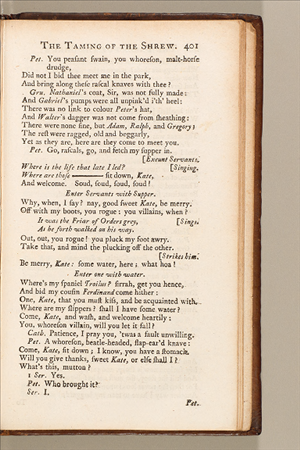 THE TAMING OF THE SHREW. 401
Pet. You peaſant ſwain, you whoreſon, malt-horſe
drudge,
Did not I bid thee meet me in the park,
And bring along theſe raſcal knaves with thee?
Gru. Nathaniel's coat, Sir, was not fully made:
And Gabriel's pumps were all unpink'd i'th' heel:
There was no link to colour Peter's hat,
And Walter's dagger was not come from ſheathing:
There were none fine, but Adam, Ralph, and Gregory;
The reſt were ragged, old and beggarly,
Yet as they are, here are they come to meet you.
Pet. Go, raſcals, go, and fetch my ſupper in.
[Exeunt Servants.
Where is the life that late I led? [Singing.
Where are thoſe ——— ſit down, Kate,
And welcome. Soud, ſoud, ſoud, ſoud!
Enter Servants with Supper.
Why, when, I ſay? nay, good ſweet Kate, be merry.
Off with my boots, you rogue: you villains, when?
It was the Friar of Orders grey, [Sings.
As he forth walked on his way.
Out, out, you rogue! you pluck my foot awry.
Take that, and mind the plucking off the other.
[Strikes him.
Be merry, Kate: ſome water, here; what hoa!
Enter one with water.
Where's my ſpaniel Troilus? ſirrah, get you hence,
And bid my couſin Ferdinand come hither:
One, Kate, that you muſt kiſs, and be acquainted with.
Where are my ſlippers? ſhall I have ſome water?
Come, Kate, and waſh, and welcome heartily:
You, whoreſon villain, will you let it fall?
Cath. Patience, I pray you, 'twas a fault unwilling.
Pet. A whoreſon, beetle-headed, flap-ear'd knave:
Come, Kate, ſit down; I know, you have a ſtomach.
Will you give thanks, ſweet Kate, or elſe ſhall I?
What's this, mutton?
1 Ser. Yes.
Pet. Who brought it?
Ser. I.
Pet.